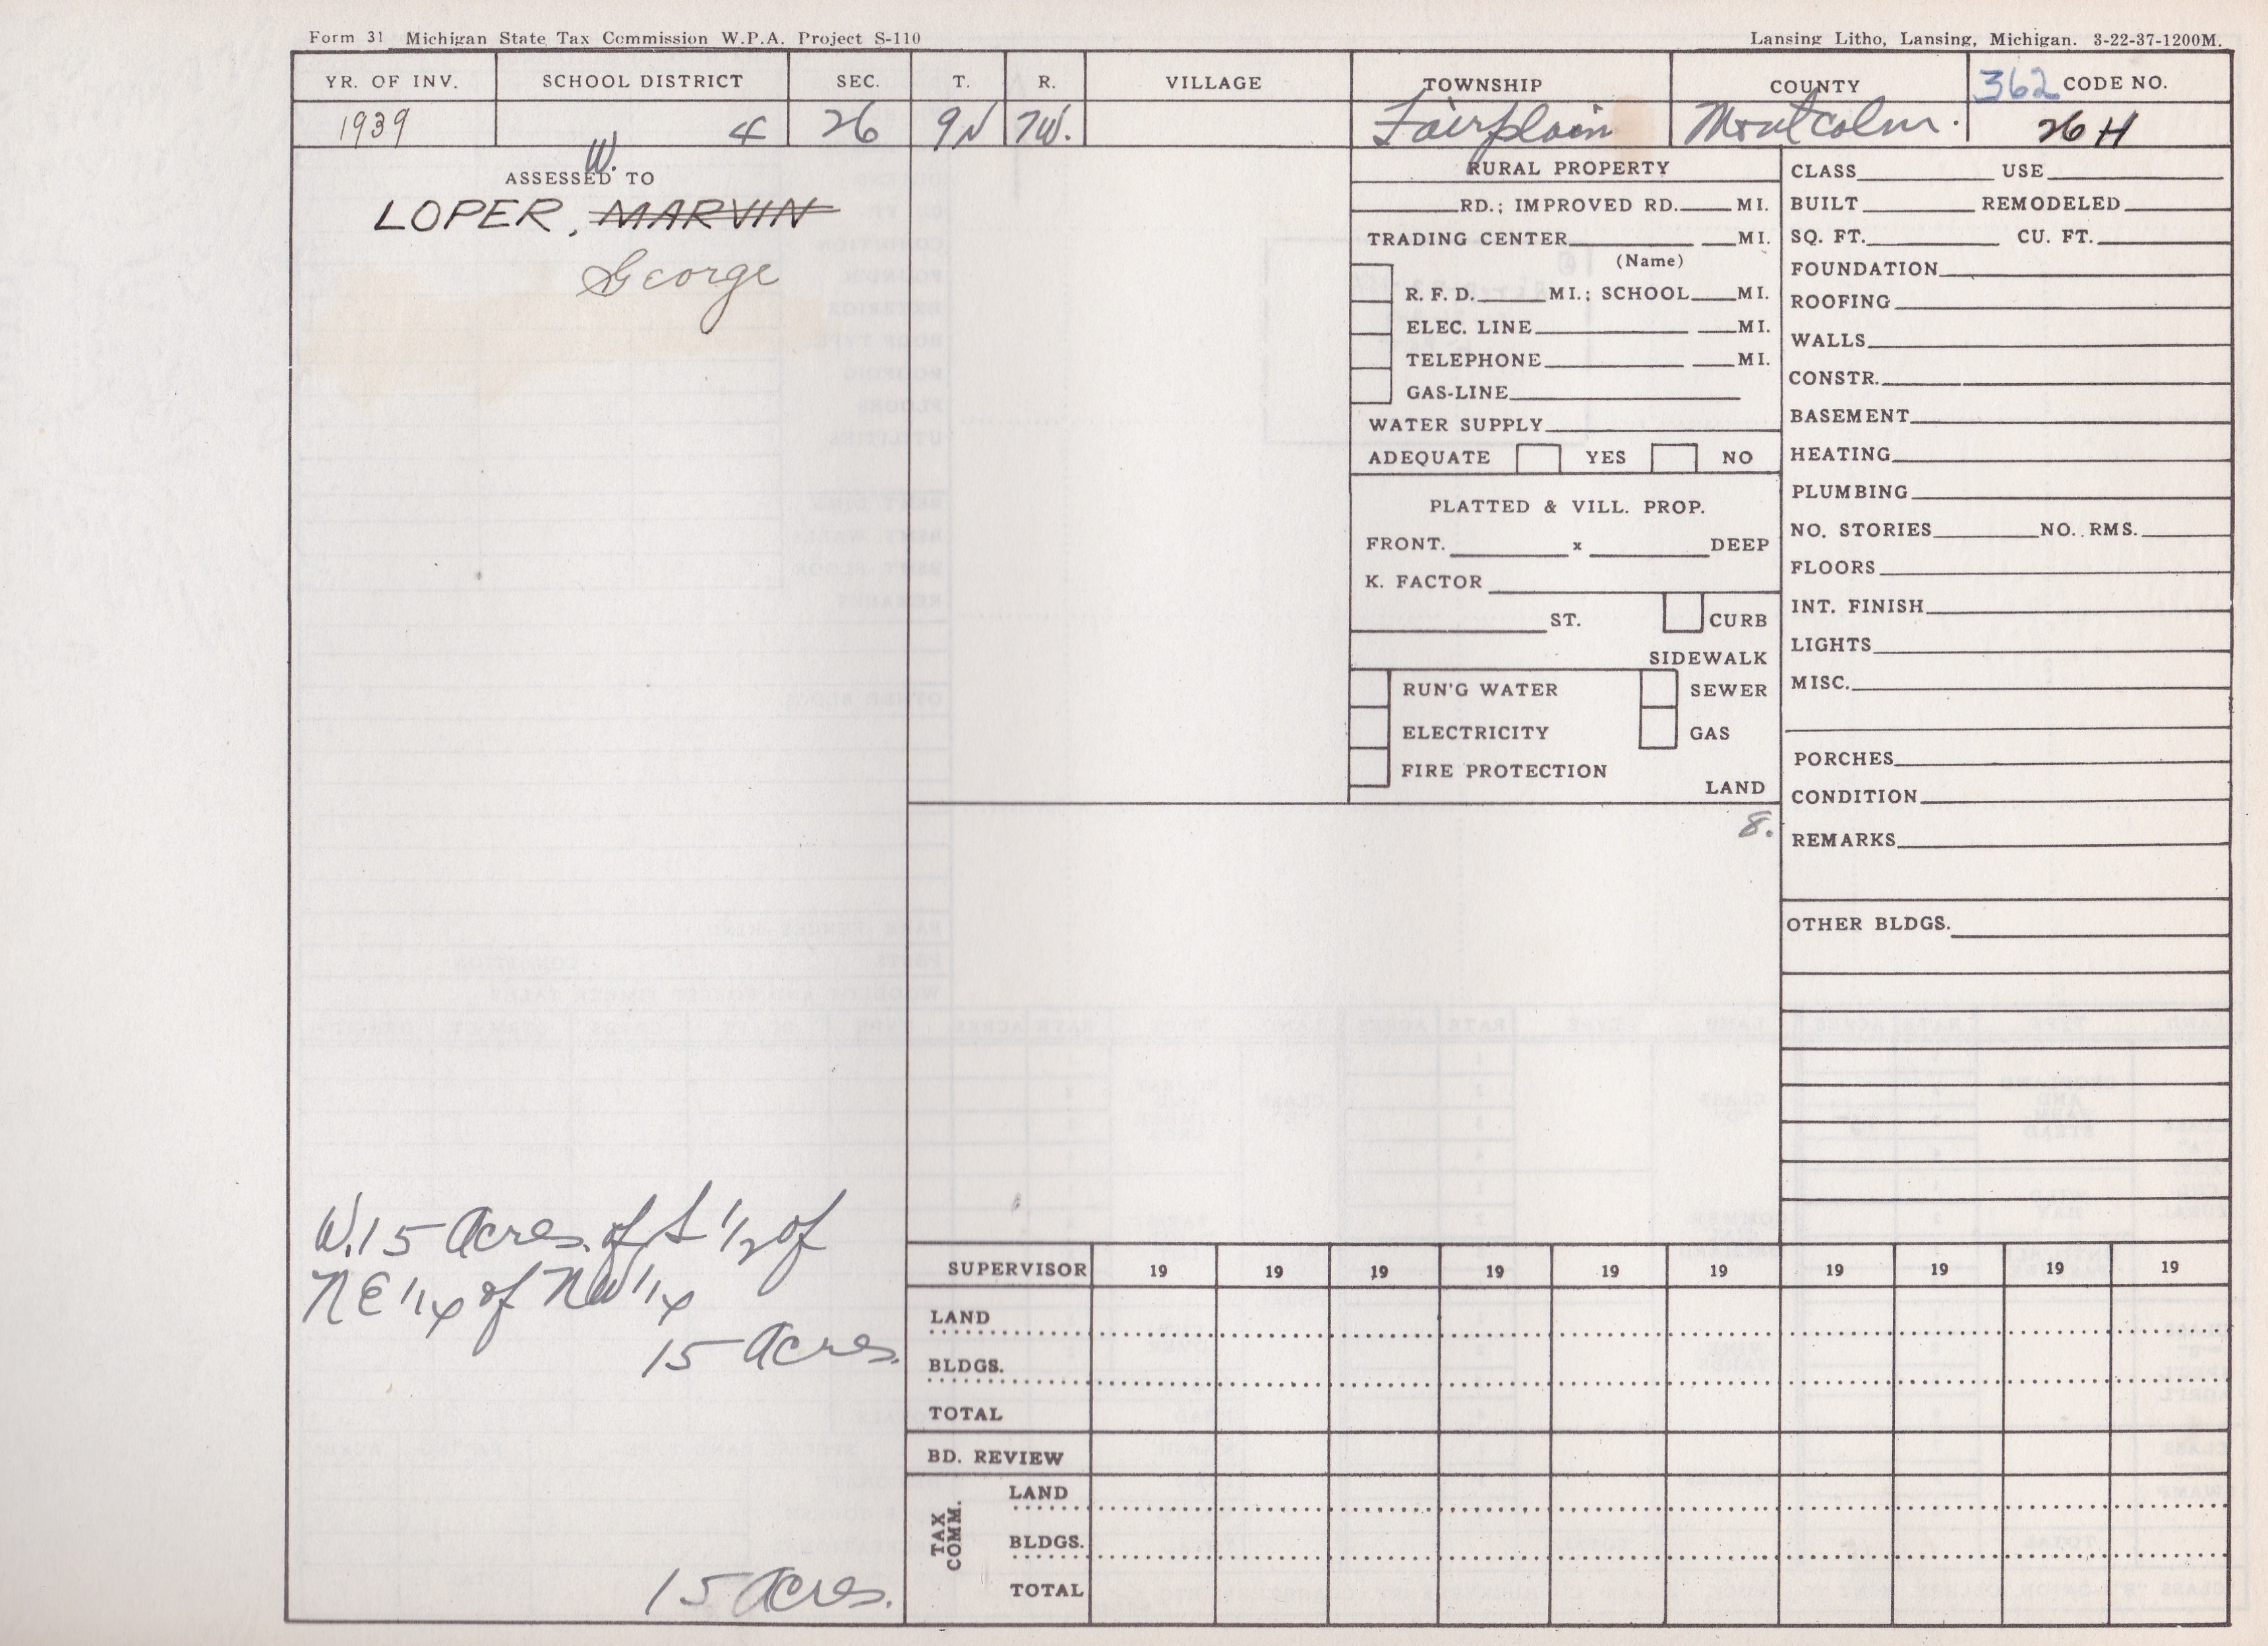 Form 31 Michigan State Tax Commission W.P.A. Project S-110
Lansing Litho, Lansing, Michigan. 3-22-37-1200M.
YR. OF INV. SCHOOL DISTRICT SEC. T. R. VILLAGE TOWNSHIP COUNTY 362 CODE NO.
1939 4 26 9N 7W. Fairplain Montcalm. 26 H
W.
ASSESSED TO
LOPER, MARVIN
George
W. 15 Acres. of S 1/2 of
NE 1/4 of NW 1/4
15 Acres.
15 Acres.
RURAL PROPERTY
RD.; IMPROVED RD. MI.
TRADING CENTER MI.
(Name)
R. F. D. MI.; SCHOOL MI.
ELEC. LINE MI.
TELEPHONE MI.
GAS-LINE
WATER SUPPLY
ADEQUATE YES NO
PLATTED & VILL. PROP.
FRONT. x DEEP
K. FACTOR
ST. CURB
SIDEWALK
RUN'G WATER SEWER
ELECTRICITY GAS
FIRE PROTECTION
LAND
8.
CLASS USE
BUILT REMODELED
SQ. FT. CU. FT.
FOUNDATION
ROOFING
WALLS
CONSTR.
BASEMENT
HEATING
PLUMBING
NO. STORIES NO. RMS.
FLOORS
INT. FINISH
LIGHTS
MISC.
PORCHES
CONDITION
REMARKS
OTHER BLDGS.
SUPERVISOR 19 19 19 19 19 19 19 19 19 19
LAND
BLDGS.
TOTAL
BD. REVIEW
TAX COMM.
LAND
BLDGS.
TOTAL